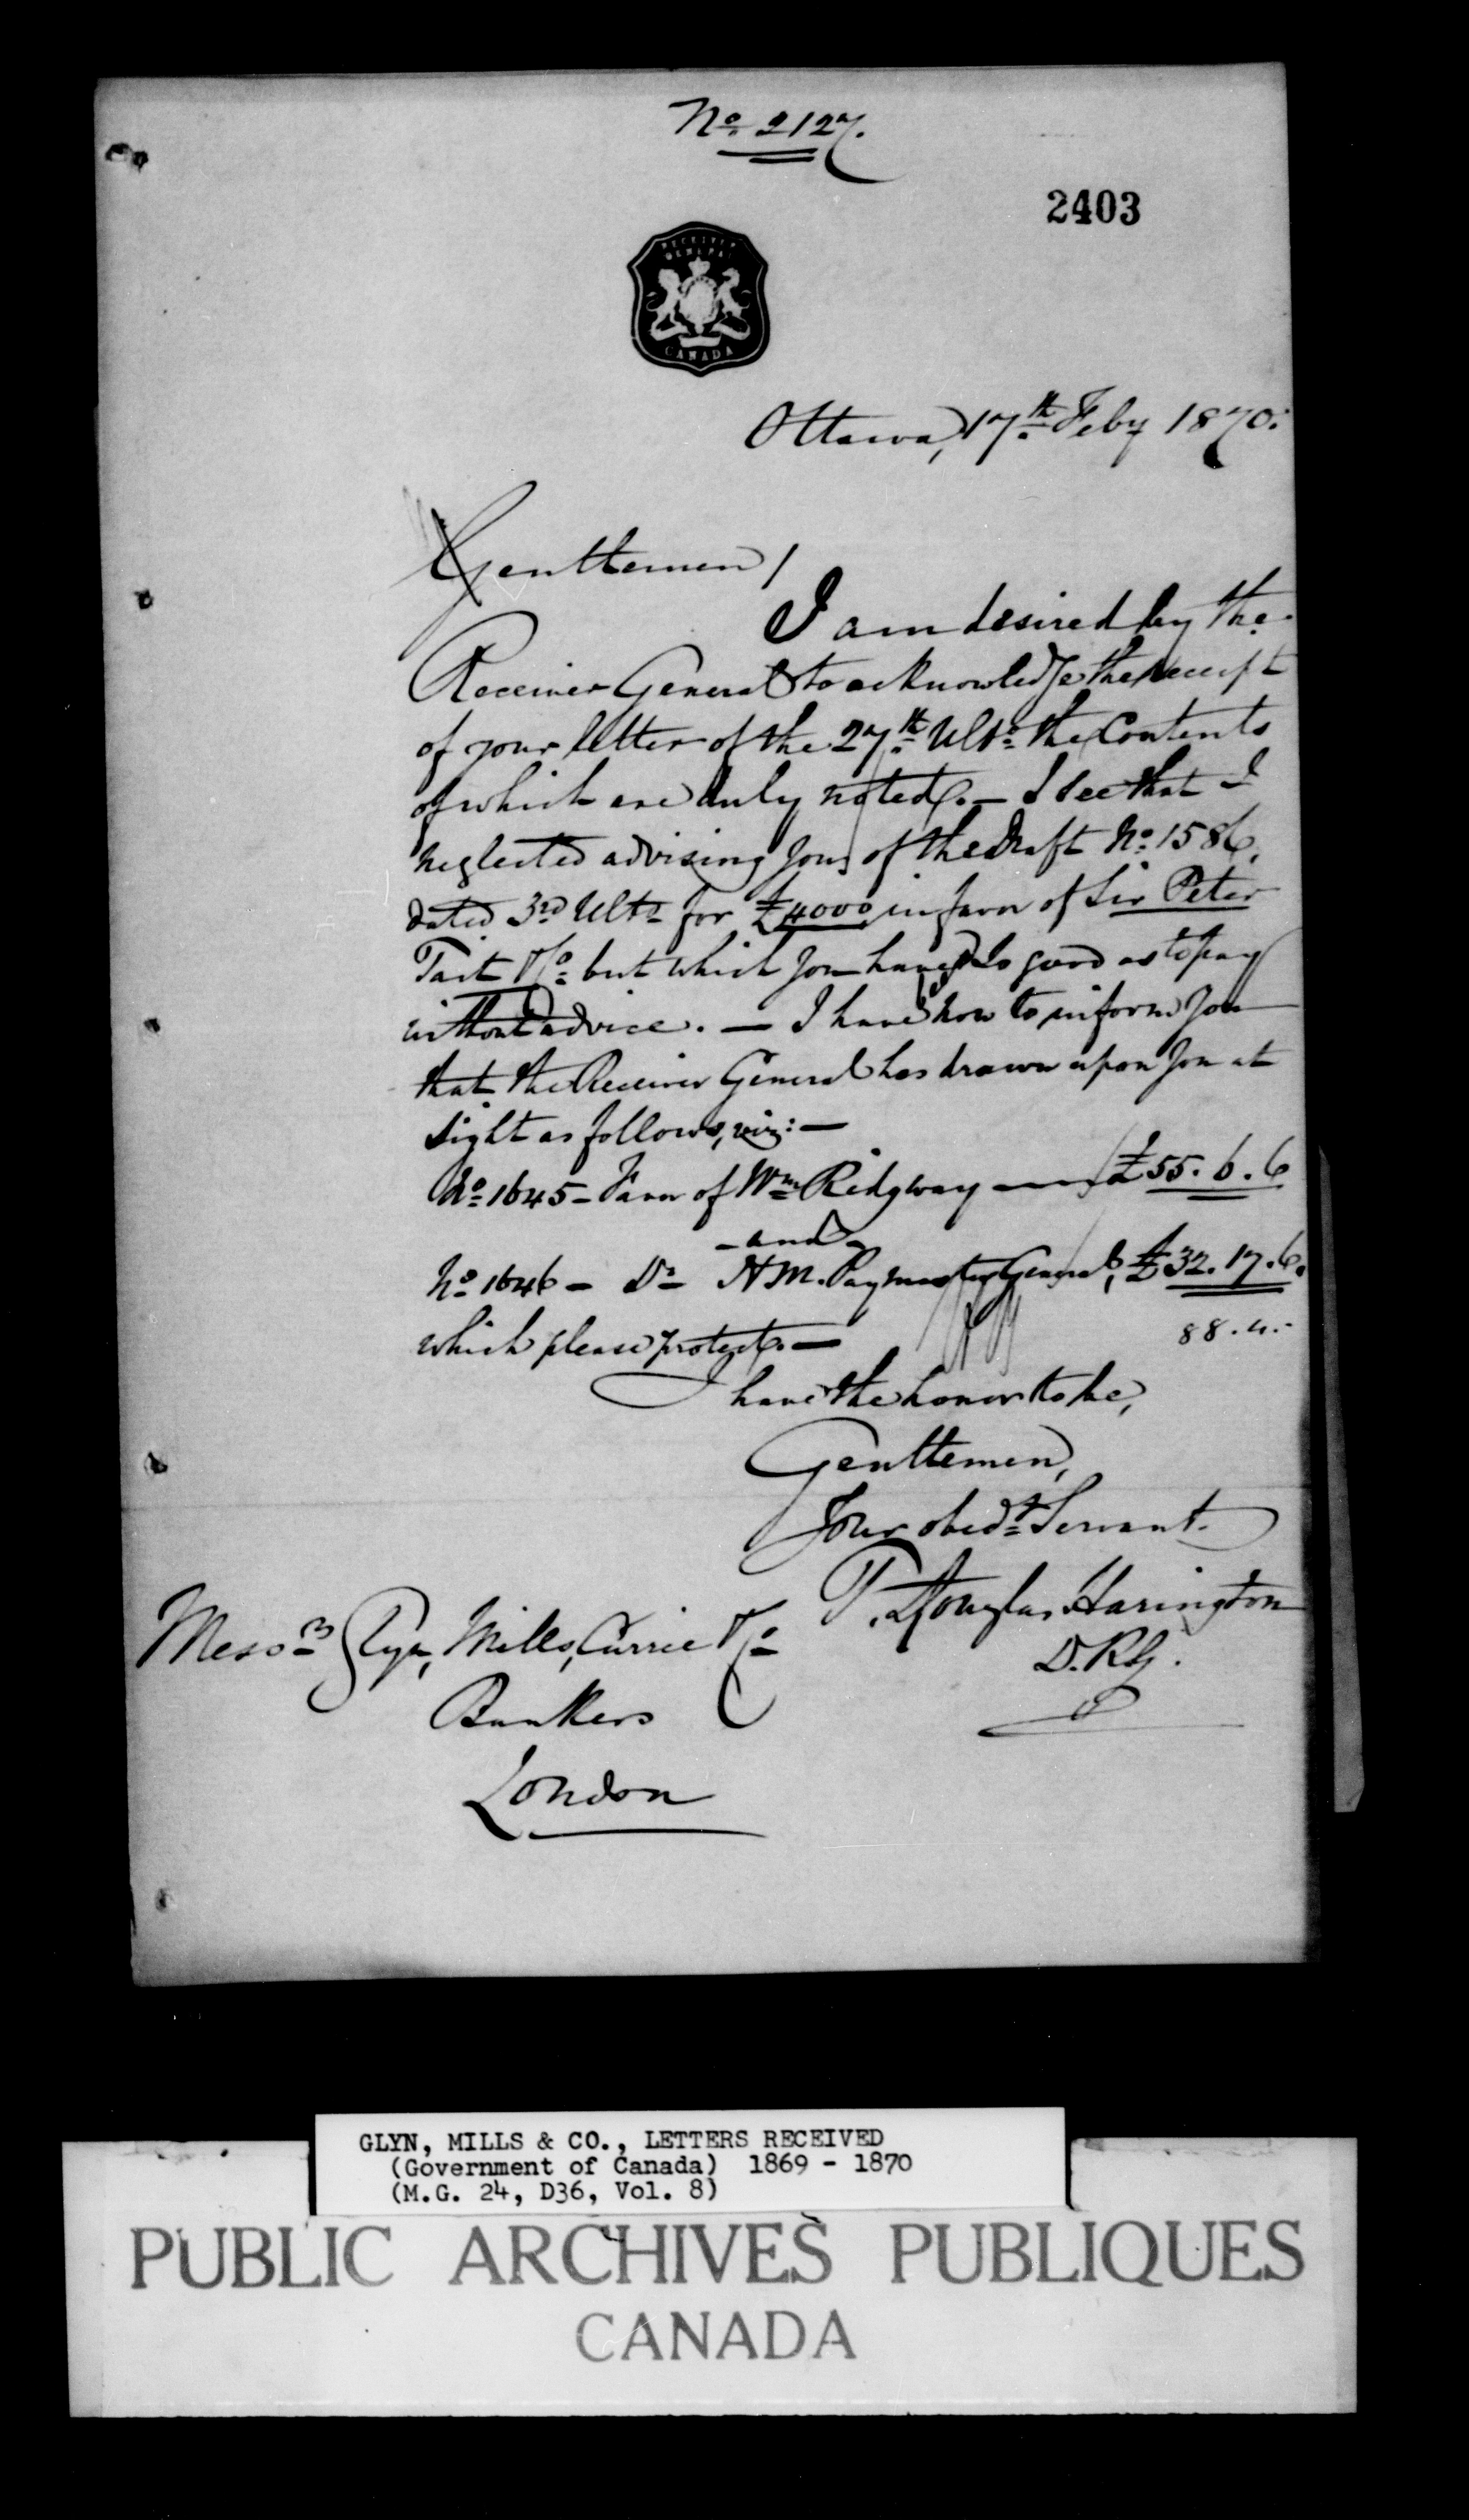 No. 2127.
2403
RECEIVER
GENERAL
CANADA
Ottawa, 17th Feby 1870.
Gentlemen,
I am desired by the
Receiver General to acknowledge the receipt
of your letter of the 27th Ulto. the Contents
of which are duly noted. — I see that I
neglected advising you of the Draft No. 1586,
dated 3rd Ulto for £4000 in favor of Sir Peter
Tait & Co. but which you have so good as to pay
without advice. — I have now to inform you
that the Receiver General has drawn upon you at
sight as follows, viz: —
No. 1645 – Favor of Wm Ridgway — £55. 6. 6
– and –
No. 1646 – Do H.M. Paymaster General, £32. 17. 6.
88. 4. -
which please protect. —
I have the honor to be,
Gentlemen,
Your obedt Servant.
T. Douglas Harington
D.R.G.
Messrs Glyn, Mills, Currie & Co
Bankers
London
GLYN, MILLS & CO., LETTERS RECEIVED
(Government of Canada) 1869 - 1870
(M.G. 24, D36, Vol. 8)
PUBLIC ARCHIVES PUBLIQUES
CANADA